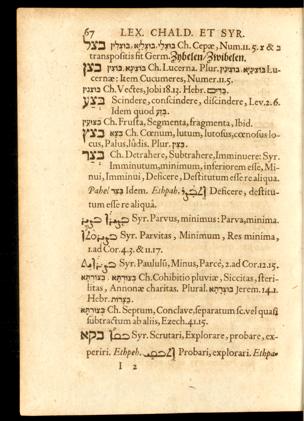 67 LEX. CHALD. ET SYR.
בצל Ch. Cepæ, Num.11.5. x & ב
transpositis fit Germ. Zybelen/Zwibelen.
בצן Ch. Lucerna. Plur. Lu-
cernæ: Item Cucumeres, Numer.11.5.
Ch. Vectes, Job.18.13. Hebr.
בצע Scindere, conscindere, discindere, Lev.2.6.
Idem quod בזע.
Ch. Frusta, Segmenta, fragmenta, Ibid.
בצץ Ch. Cœnum, lutum, lutosus, cœnosus lo-
cus, Palus, lûdis. Plur. בצין.
בצר Ch. Detrahere, Subtrahere, Imminuere: Syr.
Imminutum, minimum, inferiorem esse, Mi-
nui, Imminui, Deficere, Destitutum esse re aliqua.
Pahel בצר Idem. Ethpah. Deficere, destitu-
tum esse re aliquâ.
Syr. Parvus, minimus: Parva, minima.
Syr. Parvitas, Minimum, Res minima,
1.ad Cor.4.3. & 11.17.
Syr. Paululũ, Minus, Parcè, 2.ad Cor.12.15.
Ch. Cohibitio pluviæ, Siccitas, steri-
litas, Annonæ charitas. Plural. Jerem.14.1.
Hebr. בצרות.
Ch. Septum, Conclave, separatum sc. vel quasi
subtractum ab aliis, Ezech.41.15.
בקא Syr. Scrutari, Explorare, probare, ex-
periri. Ethpeh. Probari, explorari. Ethpa-
I 2